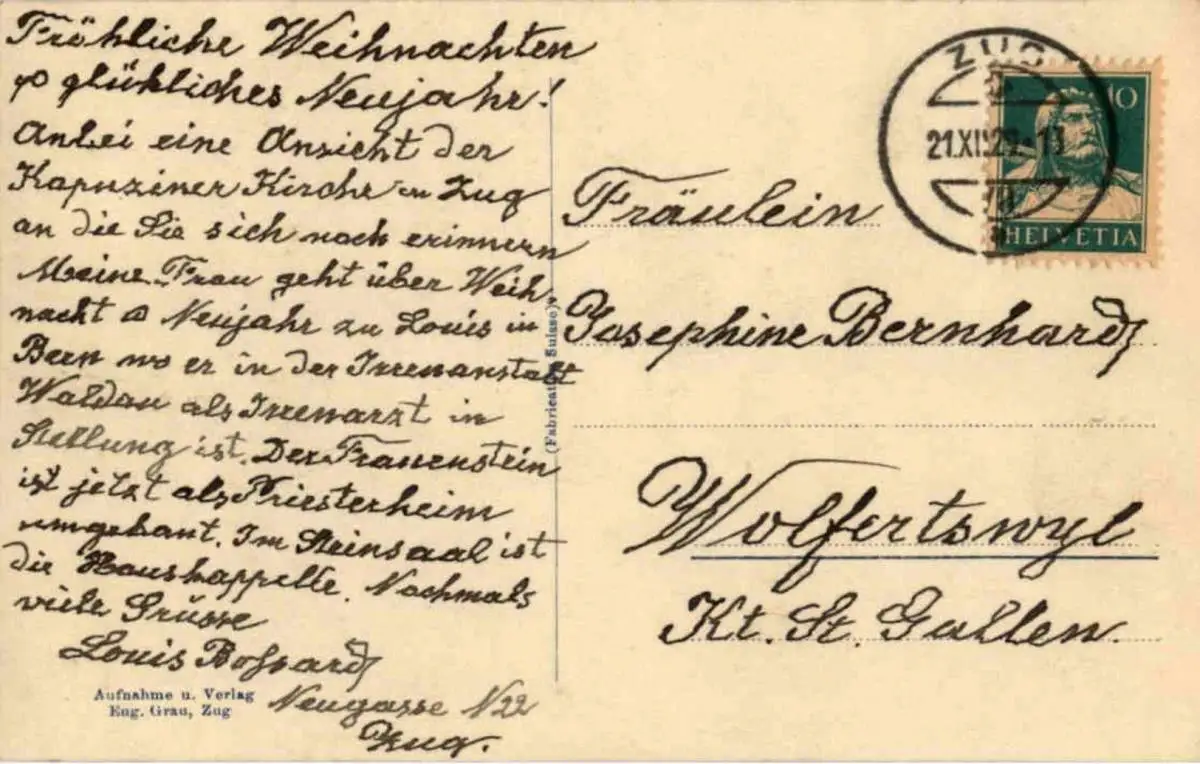 Fröhliche Weihnachten
& glükliches Neujahr!
Anbei eine Ansicht der
Kapuziner Kirche in Zug
an die Sie sich noch erinnern
Meine Frau geht über Weih-
nacht & Neujahr zu Louis in
Bern wo er in der Irrenanstalt
Waldau als Irrenarzt in
Stellung ist. Der Frauenstein
ist jetzt als Priesterheim
umgebaut. Im Steinsaal ist
die Hauskappelle. Nochmals
viele Grüsse
Louis Bossard
Neugasse N 22
Zug.
Aufnahme u. Verlag
Eug. Grau, Zug
(Fabrication Suisse)
ZUG
21.XII.29-13
10
HELVETIA
Fräulein
Josephine Bernhard
Wolfertswyl
Kt. St Gallen.